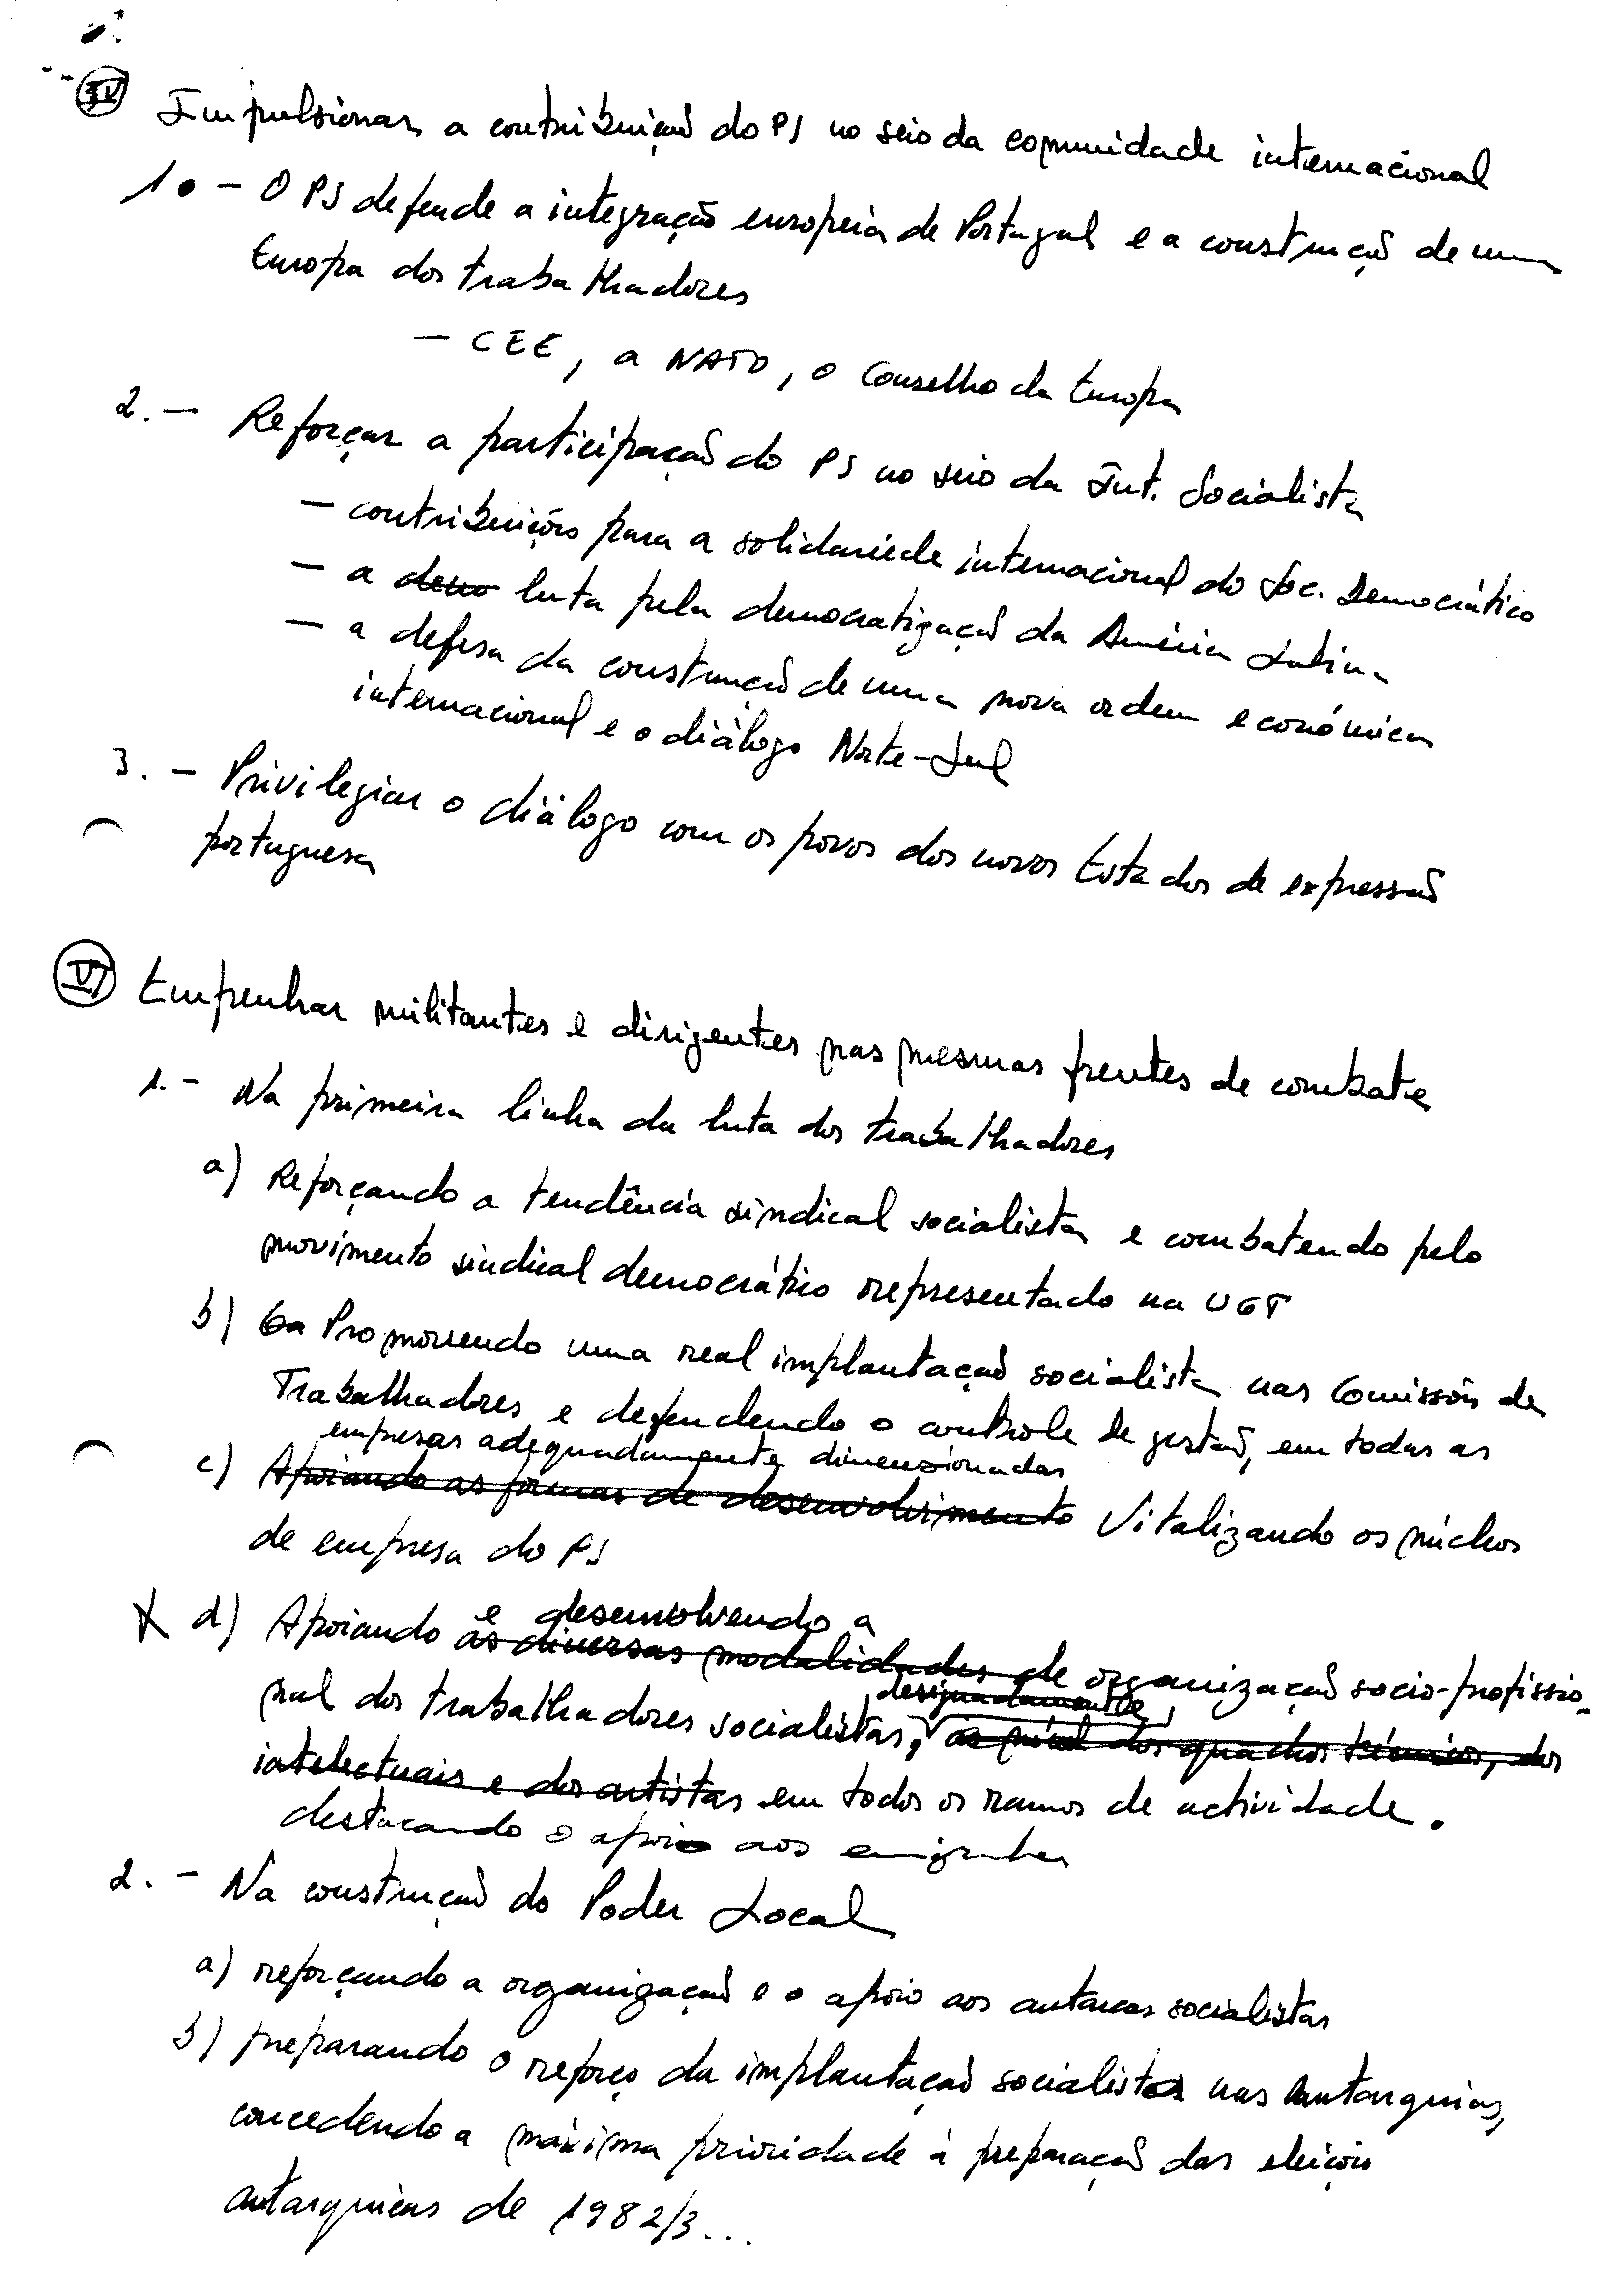 IV Impulsionar a contribuição do PS no seio da comunidade internacional
1. - O PS defende a integração europeia de Portugal e a construção de uma
Europa dos trabalhadores
- CEE, a NATO, o Conselho da Europa
2. - Reforçar a participação do PS no seio da Int. Socialista
- contribuições para a solidariedade internacional do Soc. Democrático
- a demo luta pela democratização da América Latina
- a defesa da construção de uma nova ordem económica
internacional e o diálogo Norte-Sul
3. - Privilegiar o diálogo com os povos dos novos Estados de expressão
portuguesa
VI Empenhar militantes e dirigentes nas mesmas frentes de combate
1. - Na primeira linha da luta dos trabalhadores
a) Reforçando a tendência sindical socialista e combatendo pelo
movimento sindical democrático representado na UGT
b) Promovendo uma real implantação socialista nas Comissões de
Trabalhadores e defendendo o controle de gestão, em todas as
empresas adequadamente dimensionadas
c) Apoiando as formas de desenvolvimento Vitalizando os núcleos
de empresa do PS
e desenvolvendo a
X d) Apoiando as diversas modalidades de organização socio-profissio-
designadamente,
nal dos trabalhadores socialistas, dos quadros técnicos, dos
intelectuais e dos artistas em todos os ramos de actividade.
destacando o apoio aos
2. - Na construção do Poder Local
a) reforçando a organização e o apoio aos autarcas socialistas
b) preparando o reforço da implantação socialista nas autarquias,
concedendo a máxima prioridade à preparação das eleições
autarquicas de 1982/3...